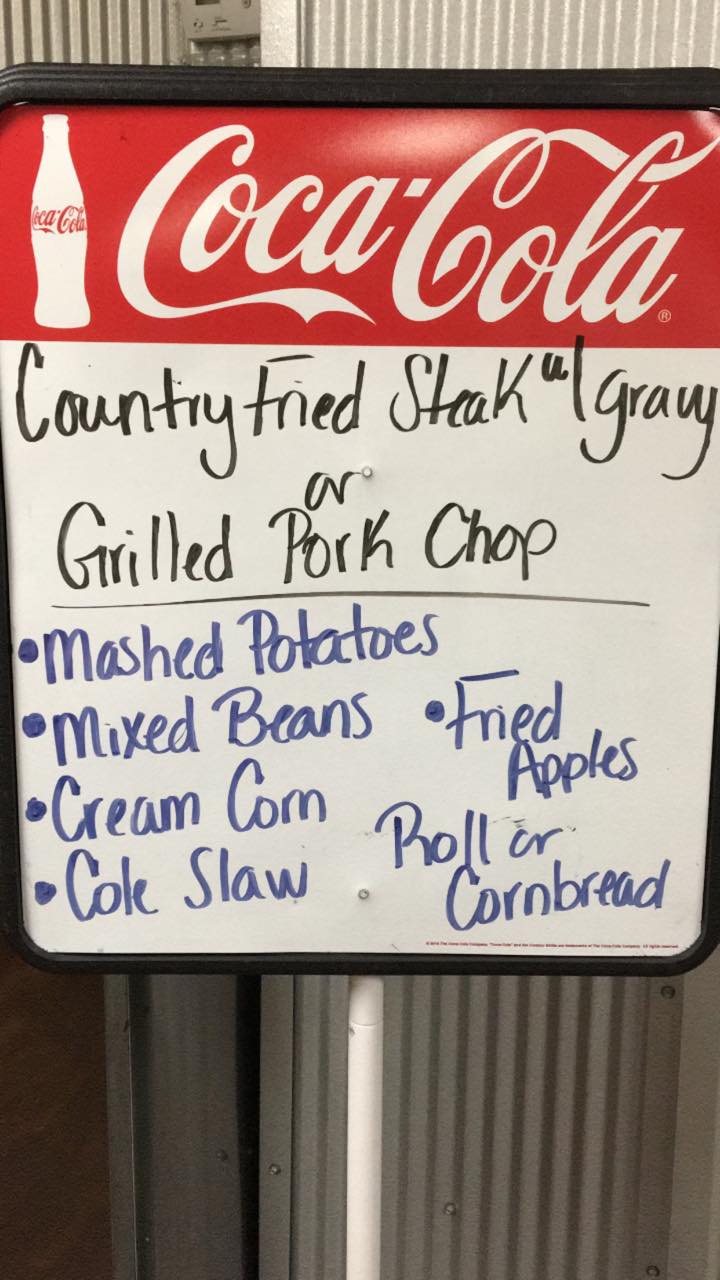 Coca-Cola
Coca-Cola®
Country Fried Steak w/ gravy
or
Grilled Pork Chop
•Mashed Potatoes
•Mixed Beans
•Cream Corn
•Cole Slaw
•Fried
Apples
Roll or
Cornbread